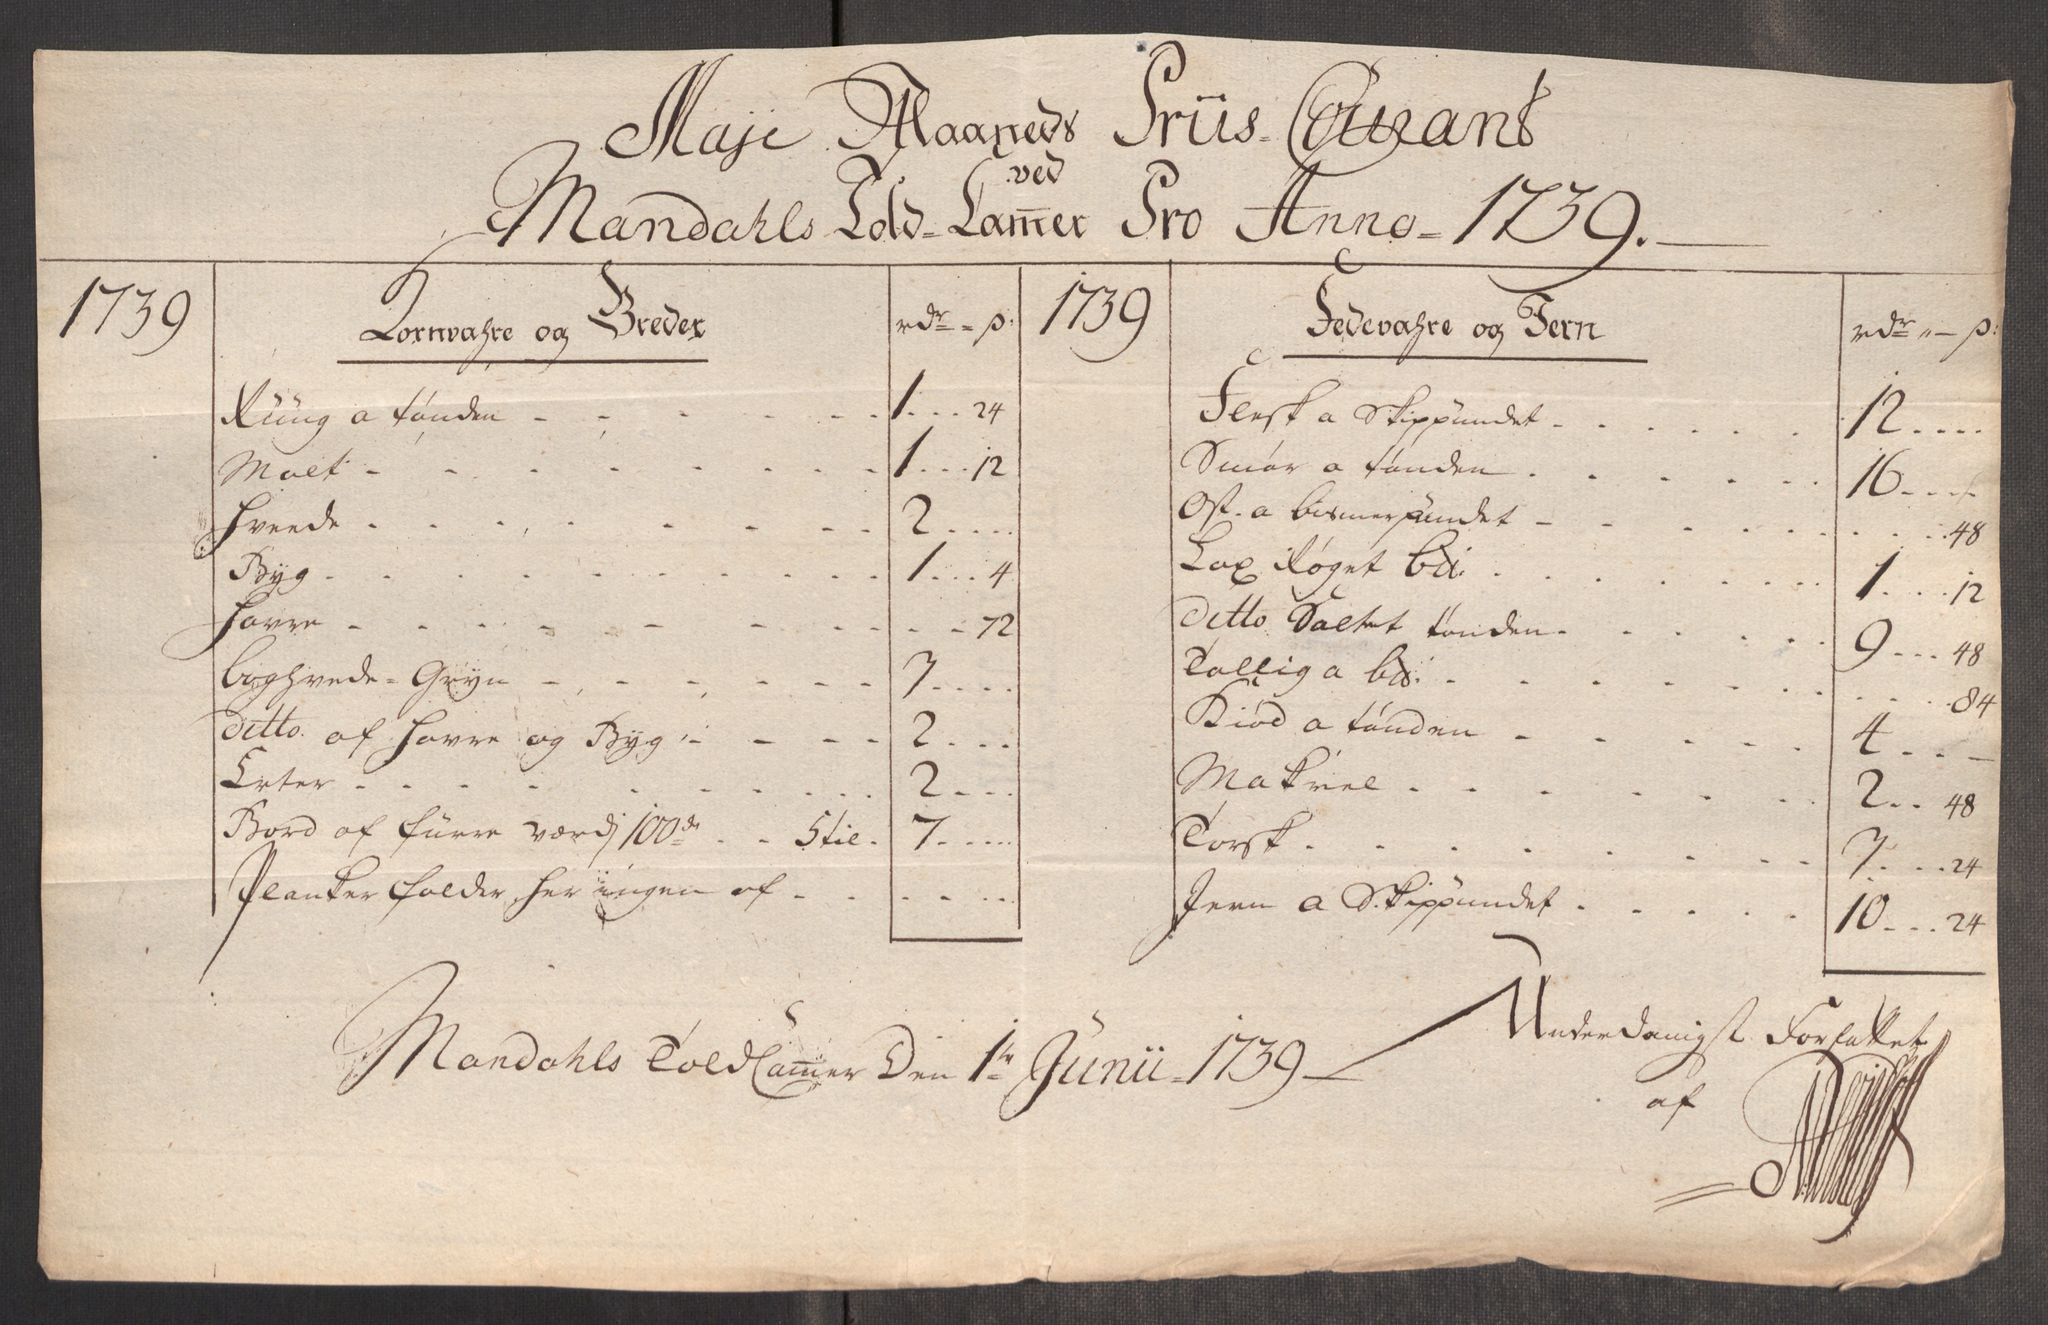 Maji Maaneds Priis-Courant
ved
Mandahls Told-Camer Pro Anno-1739.
1739
Kornvahre og Breder
rdr - s:
Rüüg a tønden 1 . . . 24
Malt 1 . . . 12
Hveede 2
Byg 1 . . . 4
Havre 72
boghvede-Gryn 7
ditto af Havre og Byg 2
Erter 2
Bord af fürre 100de 7
Planker falder her ingen af
1739
Fedevahre og Jern
rdr - s:
Flesk a Skippundet 12
Smør a tønden 16
Ost a bismerpundet 48
Lax Røget bd: 1 . . . 12
ditto Saltet tønden 9 . . . 48
Tallig a bd: 84
Kiød a tønden 4
Makriel 2 . . 48
Torsk 7 . . . 24
Jern a Skippundet 10 . . . 24
Mandahls Told Camer Den 1te Junii-1739
Underdanigst Forfattet
af